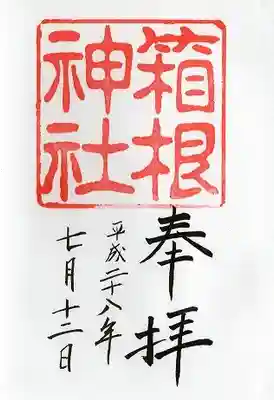 箱根
神社
奉拝
平成二十八年
七月十二日